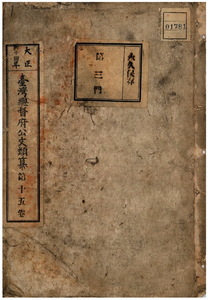 01781
永久保存
第三冊
大正
臺灣總督府公文類纂 第十五卷